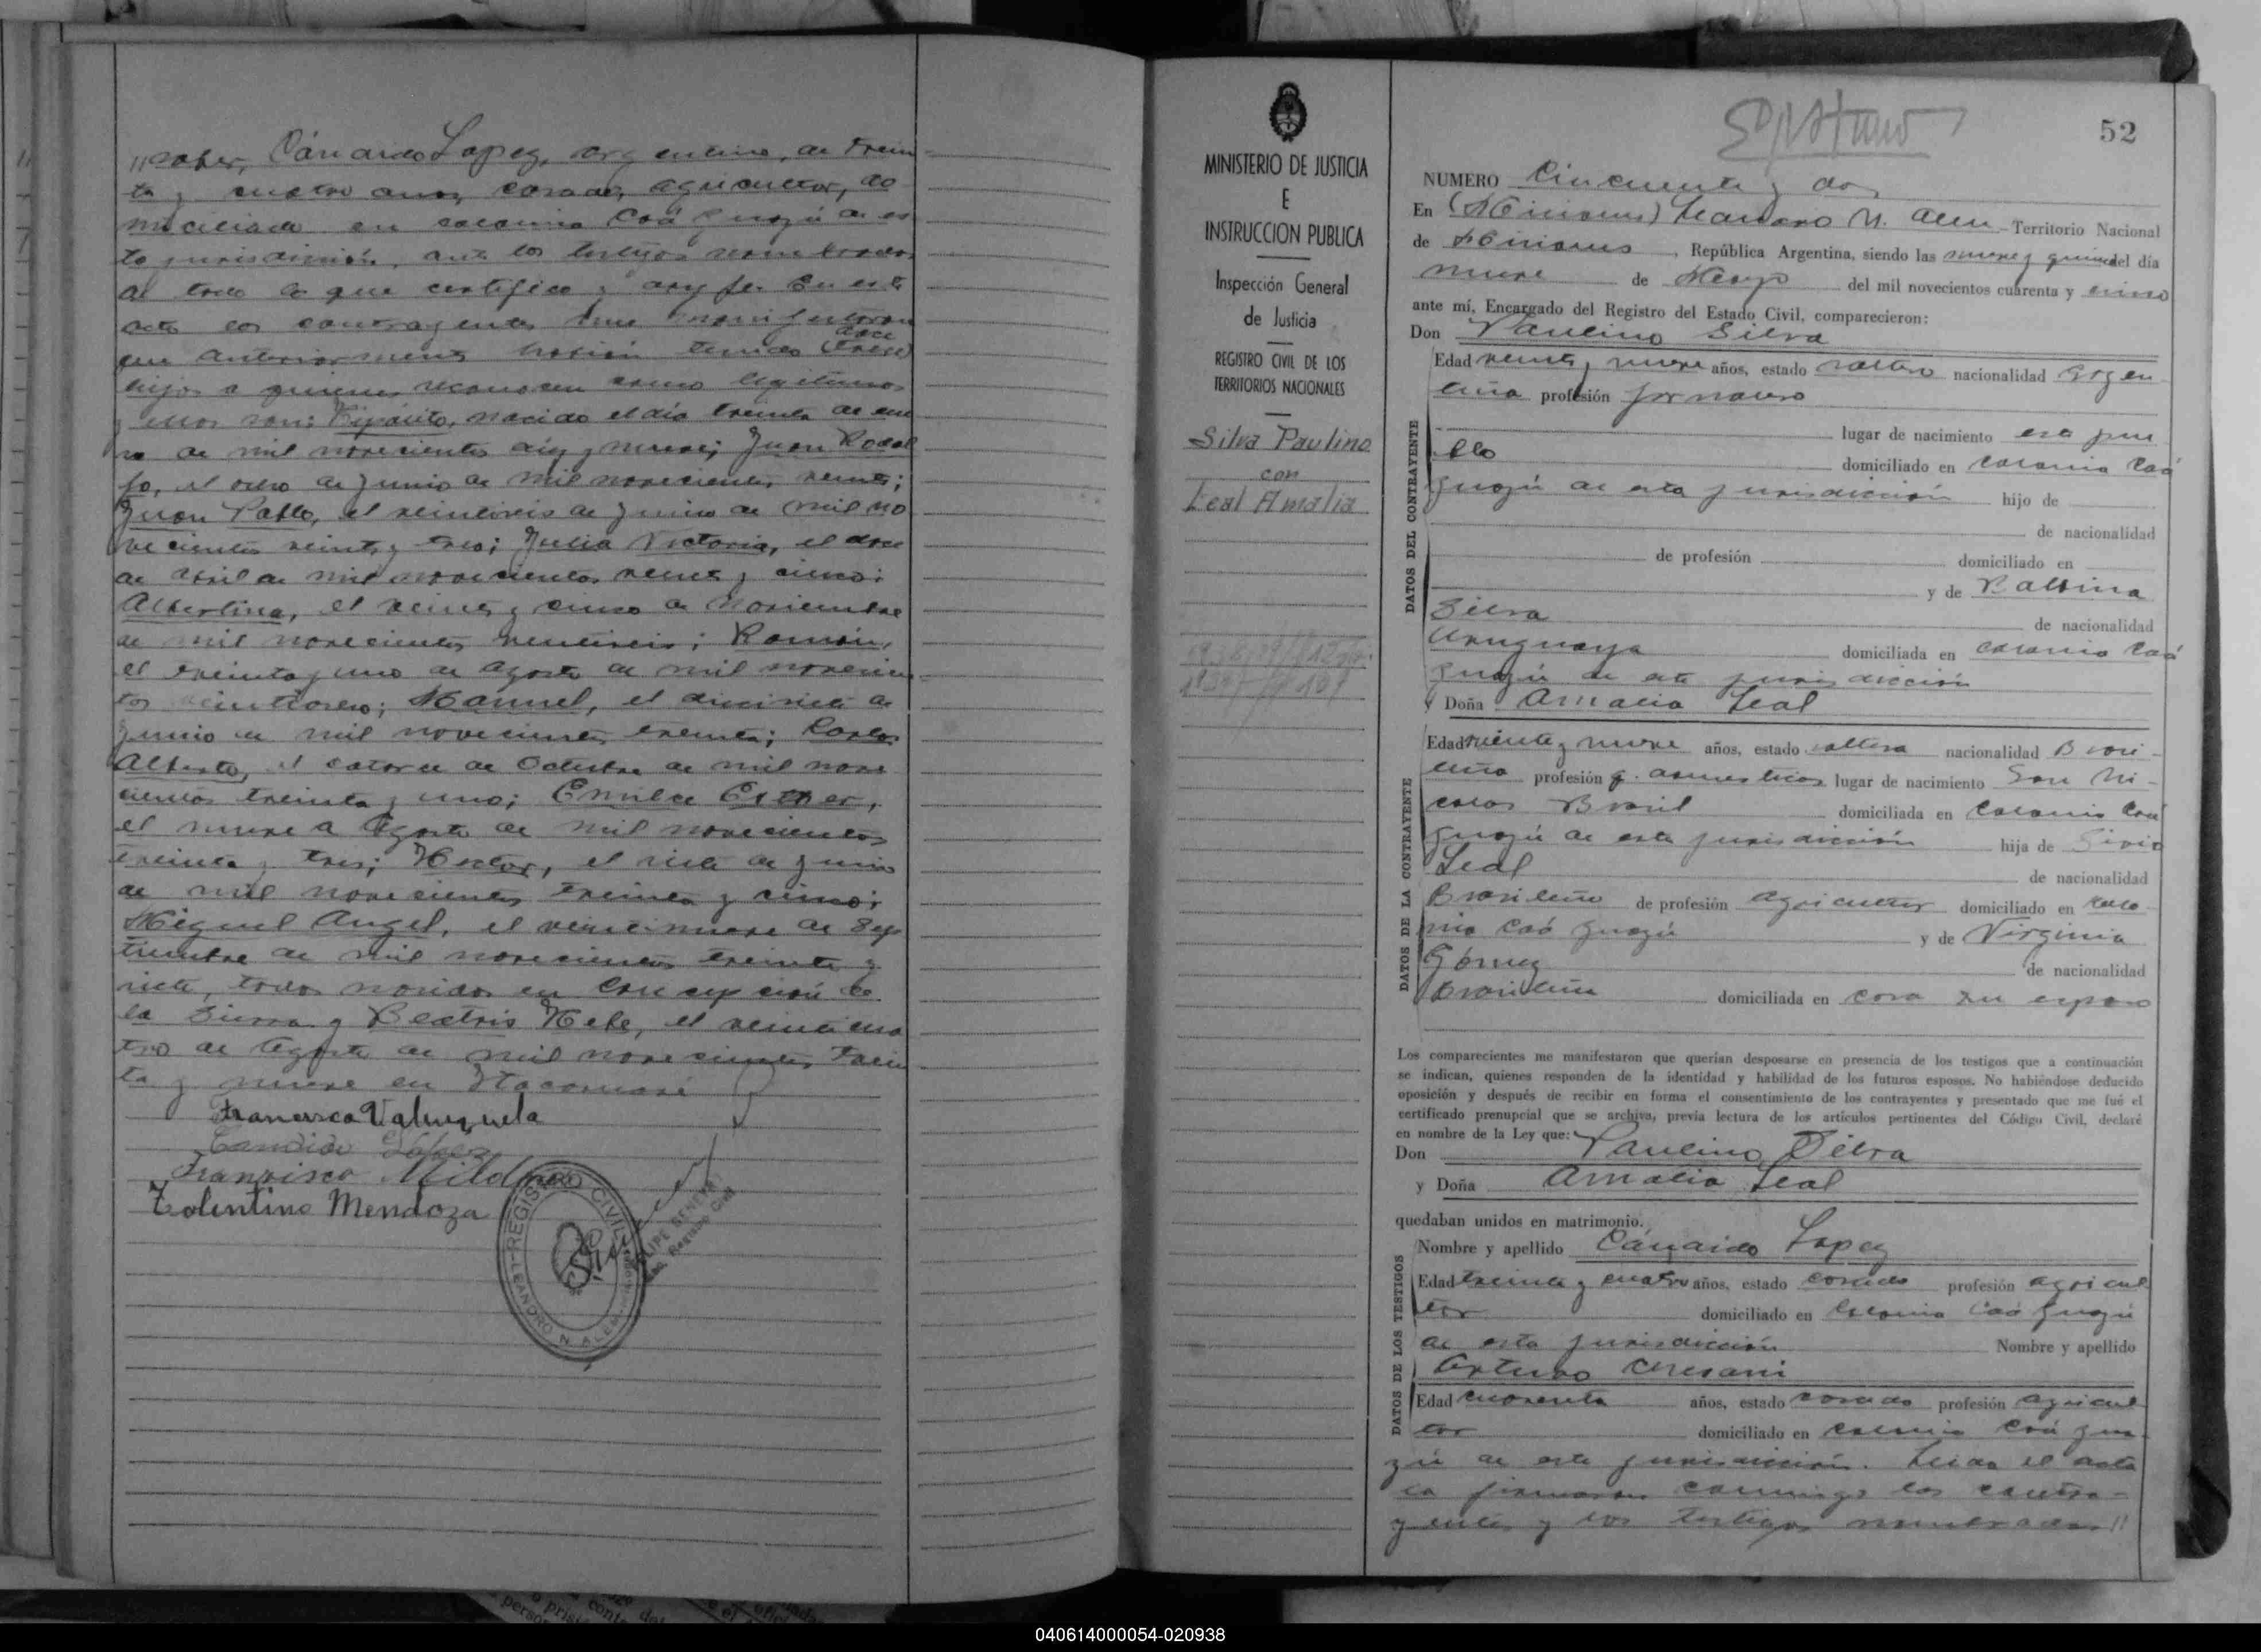 "saber, Cándido Lopez, argentino, de trein
ta y cuatro años, casado, agricultor, do
miciliado en colonia Caá Guazú de es
ta jurisdicción, ante los testigos nombrados
de todo lo que certifico y doy fe. En este
acto los contrayentes manifestaron
doce
que anteriormente habían tenido (trece)
hijos a quienes reconocen como legítimos
y ellos son: Hipólito, nacido el día treinta de ene
ro de mil novecientos diez y nueve; Juan Rodol
fo, el ocho de Junio de mil novecientos veinte;
Juan Pablo, el veintiseis de Junio de mil no
vecientos veinte y tres; Julia Victoria, el doce
de Abril de mil novecientos veinte y cinco;
Albertina, el veinte y cinco de Noviembre
de mil novecientos veintiseis; Román,
el treinta y uno de Agosto de mil novecien
tos veintiocho; Manuel, el diecisiete de
Junio de mil novecientos treinta; Carlos
Alberto, el catorce de Octubre de mil nove
cientos treinta y uno; Emilce Esther,
el nueve de Agosto de mil novecientos
treinta y tres; Hector, el siete de Junio
de mil novecientos treinta y cinco;
Miguel Angel, el veintinueve de Sep
tiembre de mil novecientos treinta y
siete, todos nacidos en Concepción de
la Sierra y Beatris Hebe, el veinticua
tro de Agosto de mil novecientos trein
ta y nueve en Itacaruaré
Francisca Valenzuela
Candido López
Francisco
Tolentino Mendoza
REGISTRO CIVIL
LEANDRO N. ALEM
MINISTERIO DE JUSTICIA
E
INSTRUCCION PUBLICA
Inspección General
de Justicia
REGISTRO CIVIL DE LOS
TERRITORIOS NACIONALES
Silva Paulino
con
Leal Amalia
52
NUMERO Cincuenta y dos
En (Misiones) Leandro N. Alem Territorio Nacional
de Misiones, República Argentina, siendo las nueve y quince del día
nueve de Mayo del mil novecientos cuarenta y cinco
ante mí, Encargado del Registro del Estado Civil, comparecieron:
Don Paulino Silva
DATOS DEL CONTRAYENTE
Edad veinte y nueve años, estado soltero nacionalidad Argen
tina profesión jornalero
lugar de nacimiento este pue
blo domiciliado en colonia Caá
Guazú de esta jurisdicción hijo de
de nacionalidad
de profesión domiciliado en
y de Balbina
Silva de nacionalidad
Uruguaya domiciliada en colonia Caá
Guazú de esta jurisdicción
y Doña Amalia Leal
DATOS DE LA CONTRAYENTE
Edad veinte y nueve años, estado soltera nacionalidad Brasi-
leña profesión q. domesticos lugar de nacimiento San Ni-
colas Brasil domiciliada en Colonia Caá
Guazú de esta jurisdicción hija de
Leal de nacionalidad
Brasileño de profesión Agricultor domiciliado en Colo-
nia Caá Guazú y de Virginia
Gómez de nacionalidad
Brasileña domiciliada en con su esposo
Los comparecientes me manifestaron que querían desposarse en presencia de los testigos que a continuación
se indican, quienes responden de la identidad y habilidad de los futuros esposos. No habiéndose deducido
oposición y después de recibir en forma el consentimiento de los contrayentes y presentado que me fué el
certificado prenupcial que se archiva, previa lectura de los artículos pertinentes del Código Civil, declaré
en nombre de la Ley que:
Don Paulino Silva
y Doña Amalia Leal
quedaban unidos en matrimonio.
DATOS DE LOS TESTIGOS
Nombre y apellido Cándido Lopez
Edad treinta y cuatro años, estado casado profesión agricul
tor domiciliado en Colonia Caá Guazú
de esta jurisdicción Nombre y apellido
Arturo
Edad cuarenta años, estado casado profesión agricul
tor domiciliado en colonia Caá Gua-
zú de esta jurisdicción. Leida el acta
la firmaron conmigo los contra-
yentes y los testigos nombrados"
040614000054-020938